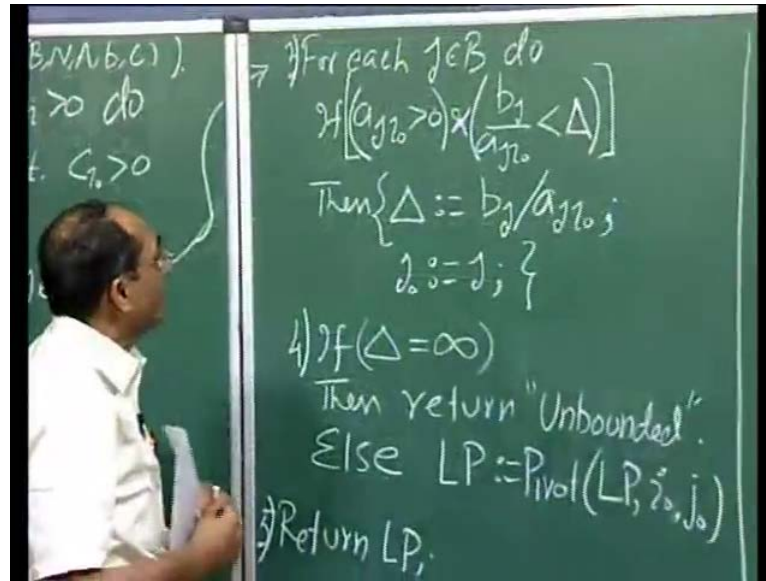 B,N,A,b,C)).
>0 do
t. C_{i₀}>0
→ 3) For each j∈B do
If[(a_{ji₀}>0)&(b_j/a_{ji₀}<Δ)]
Then{Δ := b_j/a_{ji₀};
j₀:=j;}
4) If(Δ=∞)
Then return "Unbounded".
Else LP:=Pivot(LP,i₀,j₀)
5) Return LP;